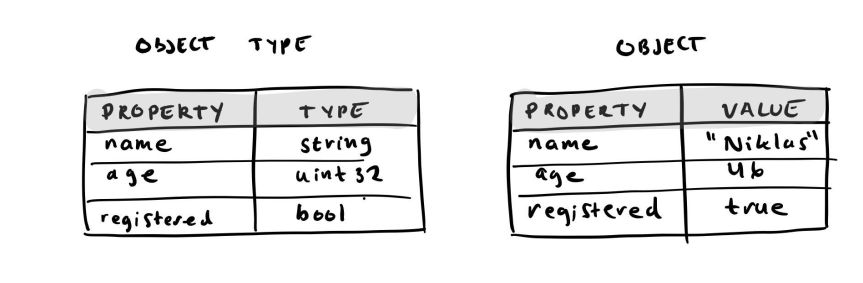 OBJECT TYPE
PROPERTY TYPE
name string
age uint32
registered bool
OBJECT
PROPERTY VALUE
name "Niklas"
age 46
registered true